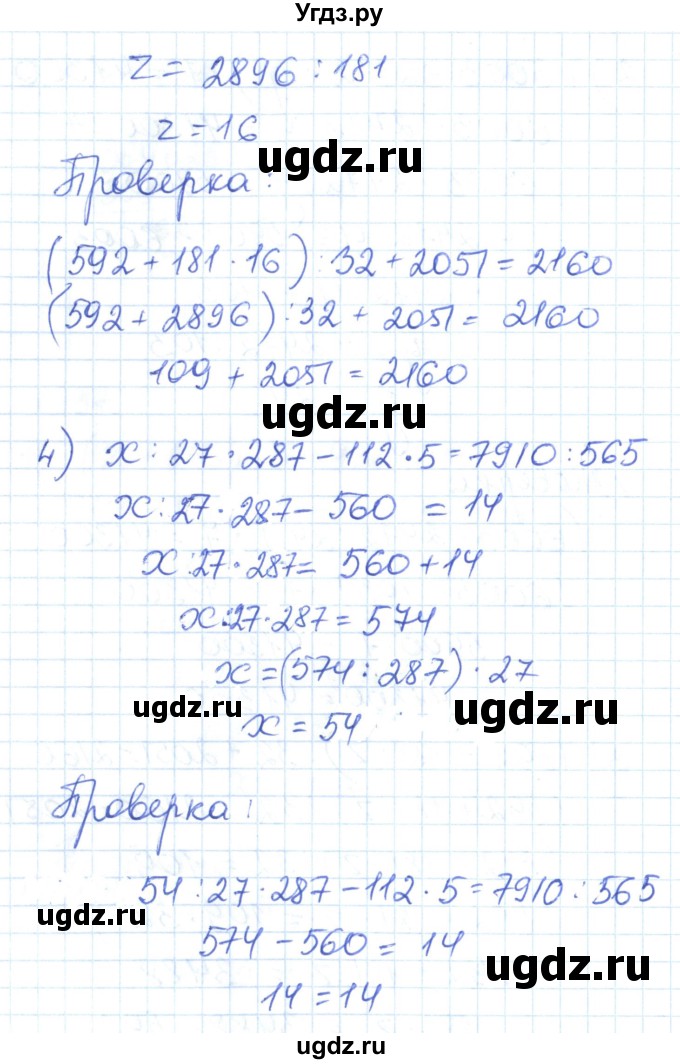 Угдз.ру
z = 2896 : 181
z = 16
ugdz.ru
Проверка:
(592 + 181 · 16) : 32 + 2051 = 2160
(592 + 2896) : 32 + 2051 = 2160
109 + 2051 = 2160
ugdz.ru
4) x : 27 · 287 - 112 · 5 = 7910 : 565
x : 27 · 287 - 560 = 14
x : 27 · 287 = 560 + 14
x : 27 · 287 = 574
x = (574 : 287) · 27
ugdz.ru
x = 54
ugdz.ru
Проверка:
54 : 27 · 287 - 112 · 5 = 7910 : 565
ugdz.ru
574 - 560 = 14
ugdz.ru
14 = 14
ugdz.ru